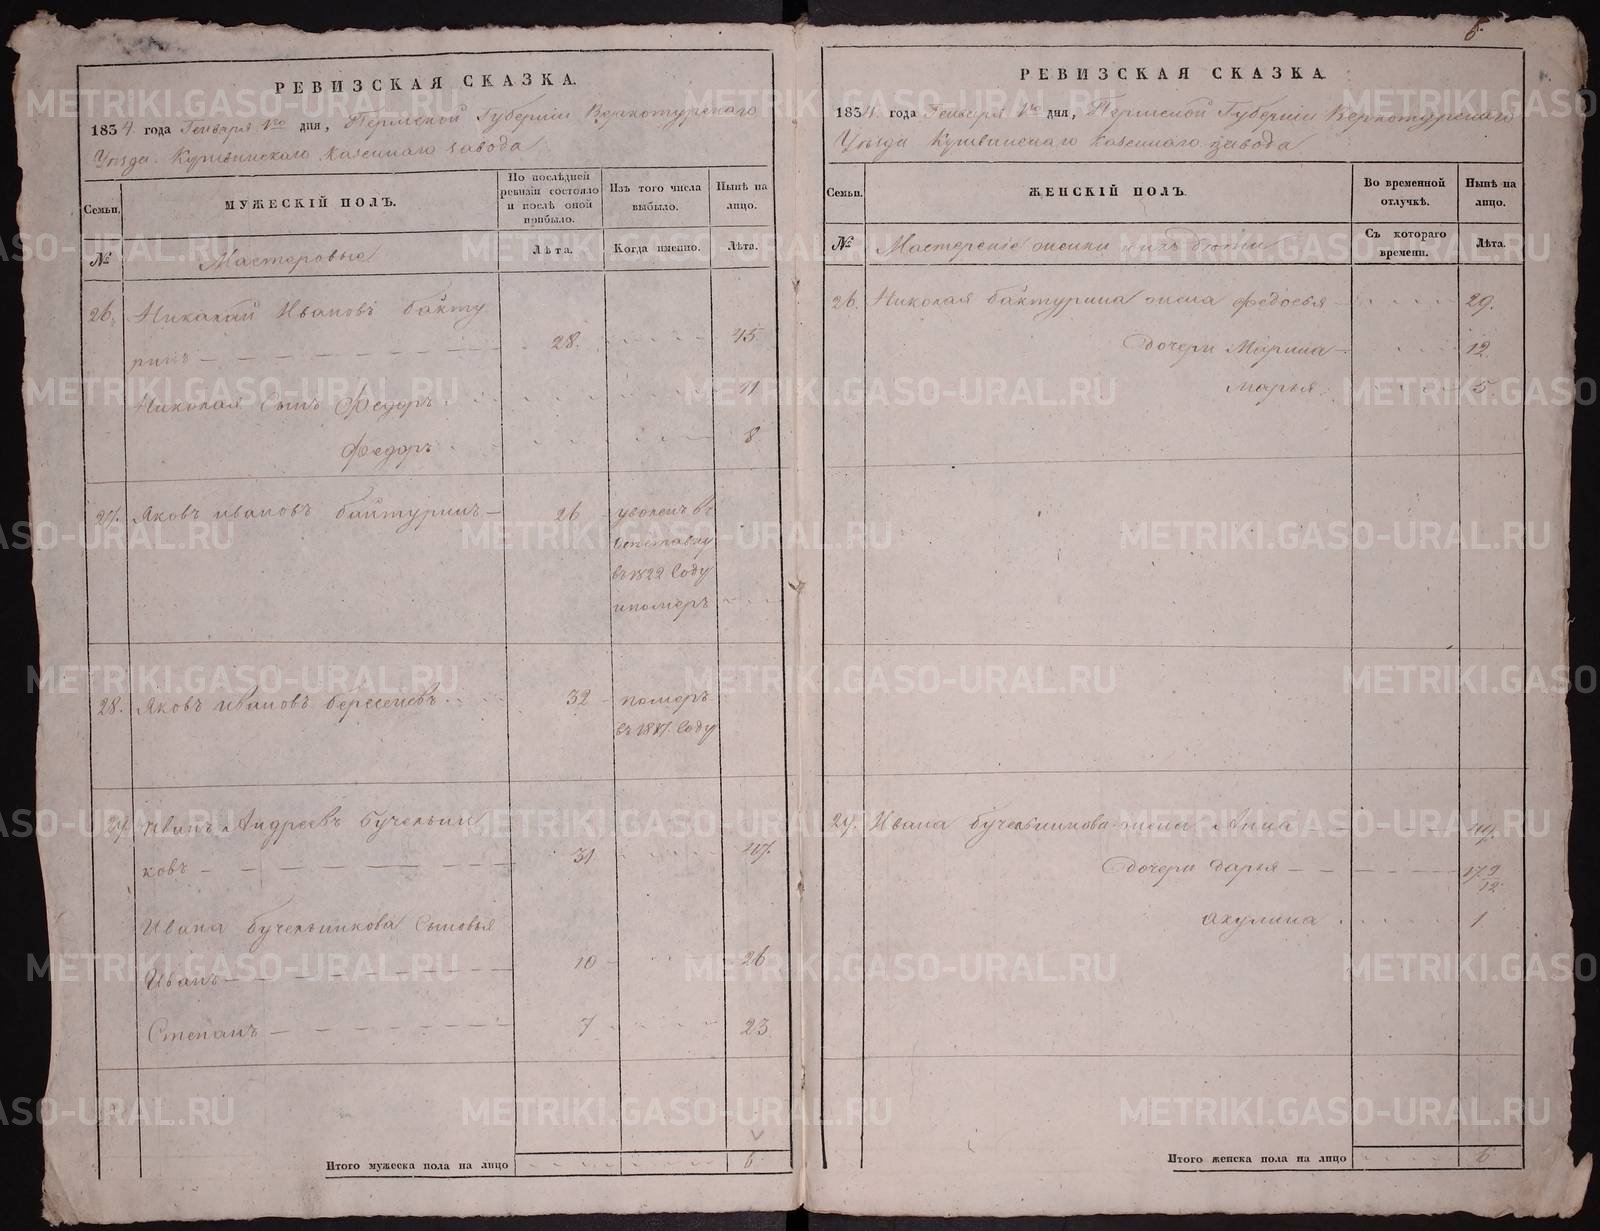 РЕВИЗСКАЯ СКАЗКА.
1834 года Генваря дня, Пермской Губерніи Верхотурскаго
Уѣзда Кушвинскаго казеннаго завода
Семьи.
МУЖЕСКІЙ ПОЛЪ.
По послѣдней ревизіи состояло и послѣ оной прибыло.
Изъ того числа выбыло.
Нынѣ на лицо.
№
Мастеровые
Лѣта.
Когда именно.
Лѣта.
26. Николай Ивановъ Бакту
ринъ 28. 45
Николая Сынъ Федоръ 11
Федоръ 8
27. Яковъ Ивановъ Бактуринъ 26 уволенъ въ
отставку
въ 1822 Году
и померъ
28. Яковъ Ивановъ 32 померъ
въ Году
29. Иванъ Андреевъ Бучельни
ковъ 31 47.
Ивана Бучельникова Сыновья
Иванъ 10 26
Степанъ 7 23
Итого мужеска пола на лицо 6
6.
РЕВИЗСКАЯ СКАЗКА.
1834. года Генваря дня, Пермской Губерніи Верхотурскаго
Уѣзда Кушвинскаго казеннаго завода
Семьи.
ЖЕНСКІЙ ПОЛЪ.
Во временной отлучкѣ.
Нынѣ на лицо.
№
Мастерскіе женки и ихъ дѣти
Съ котораго времени.
Лѣта.
26. Николая Бактурина жена Федосья 29.
дочери Марина 12.
Марья 5
29. Ивана Бучельникова жена Анна 49.
дочери Дарья 17 9/12
Акулина 1
Итого женска пола на лицо 6
METRIKI.GASO-URAL.RU